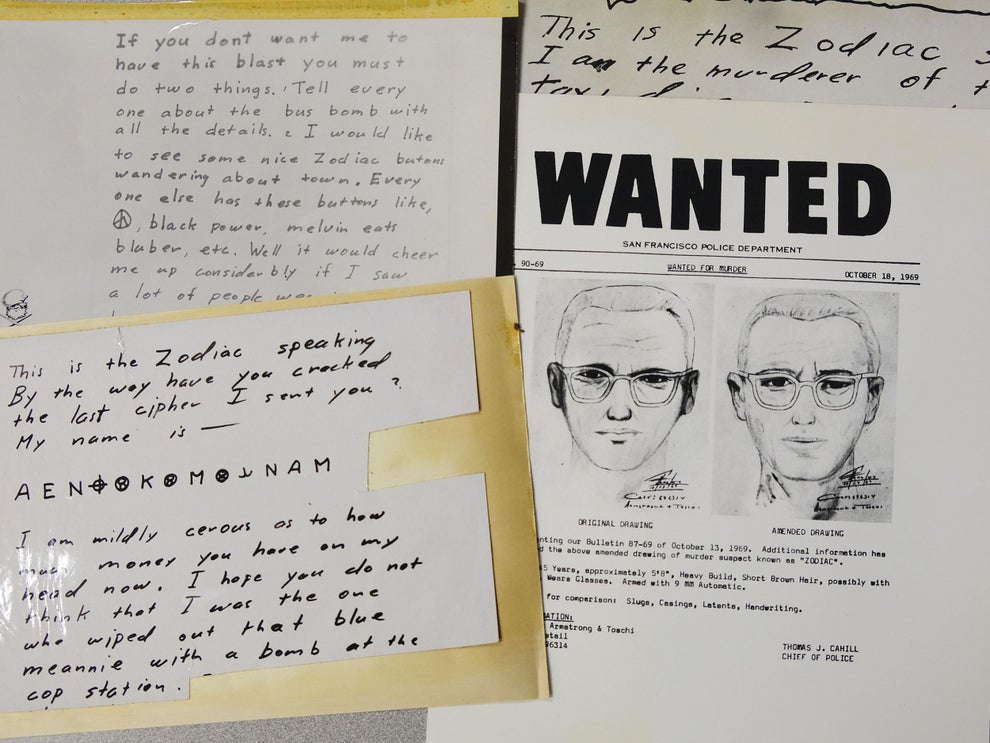 If you dont want me to
have this blast you must
do two things. 1 Tell every
one about the bus bomb with
all the details. 2 I would like
to see some nice Zodiac butons
wandering about town. Every
one else has these buttons like,
☮, black power, melvin eats
bluber, etc. Well it would cheer
me up considerbly if I saw
a lot of people
This is the Zodiac
I am the murderer of
This is the Zodiac speaking
By the way have you cracked
the last cipher I sent you?
My name is —
A E N ⌖ ⊗ K ⊗ M ⊗ ⅃ N A M
I am mildly cerous as to how
much money you have on my
head now. I hope you do not
think that I was the one
who wiped out that blue
meannie with a bomb at the
cop station.
WANTED
SAN FRANCISCO POLICE DEPARTMENT
90-69 WANTED FOR MURDER OCTOBER 18, 1969
ORIGINAL DRAWING AMENDED DRAWING
nting our Bulletin 87-69 of October 13, 1969. Additional information has
d the above amended drawing of murder suspect known as "ZODIAC".
5 Years, approximately 5'8", Heavy Build, Short Brown Hair, possibly with
Wears Glasses. Armed with 9 MM Automatic.
for comparison: Slugs, Casings, Latents, Handwriting.
ATION:
Armstrong & Toschi
etail
96314
THOMAS J. CAHILL
CHIEF OF POLICE